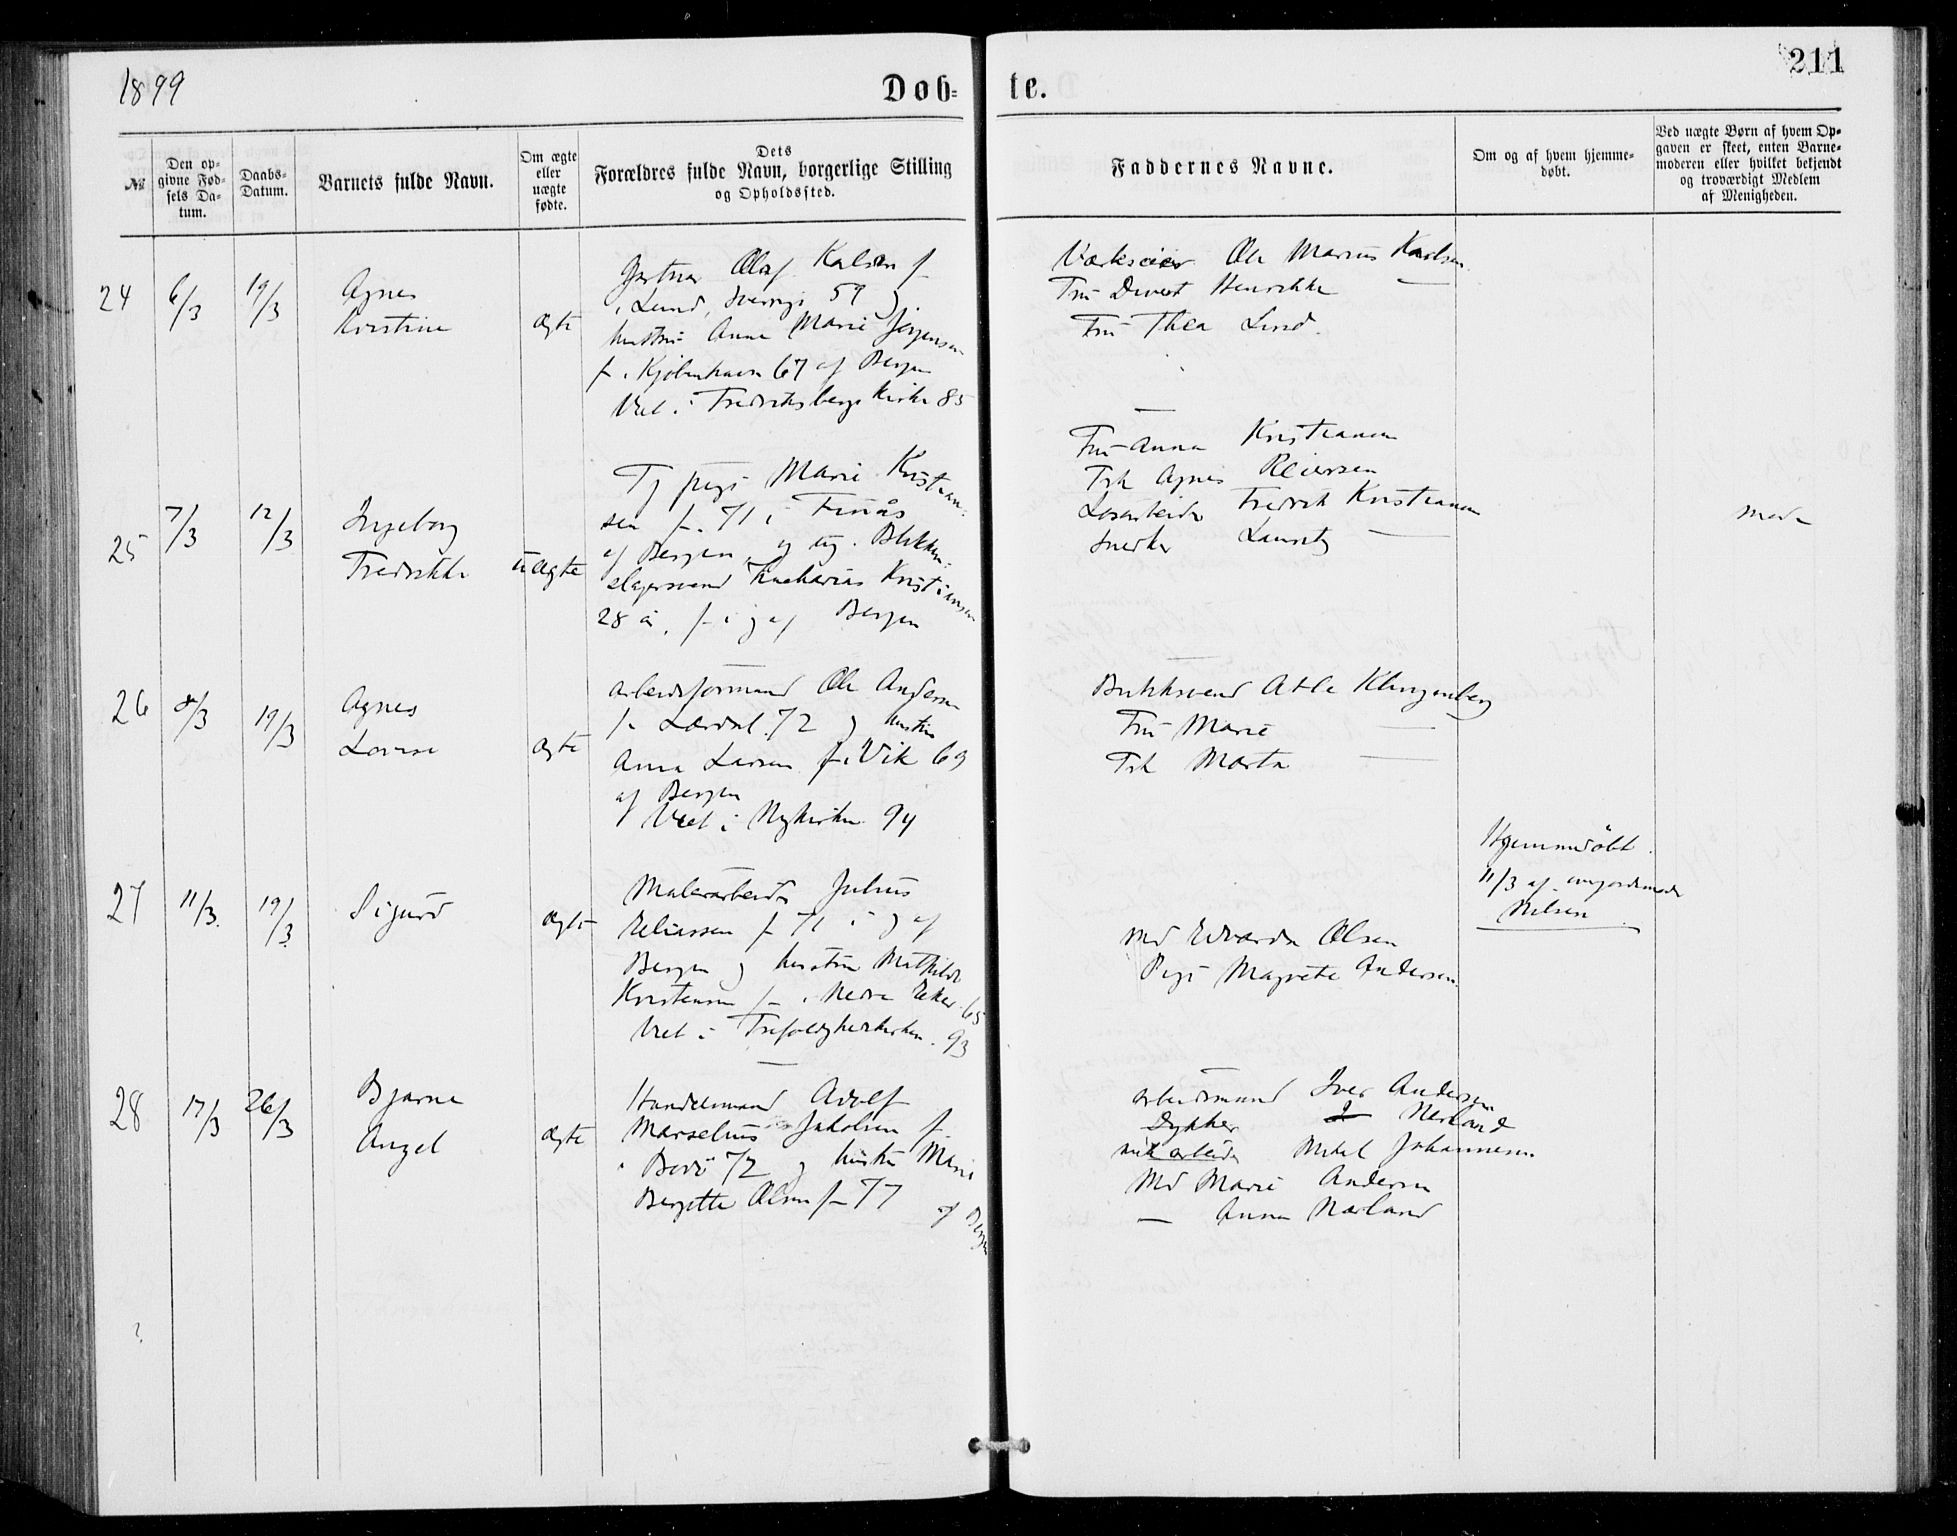 1899
Døb=
te.
211
№
Den op=
givne Fød=
sels Da=
tum.
Daabs=
Datum.
Barnets fulde Navn.
Om ægte
eller
uægte
fødte.
Dets
Forældres fulde Navn, borgerlige Stilling
og Opholdssted.
Faddernes Navne.
Om og af hvem hjemme=
døbt.
Ved uægte Børn af hvem Op=
gaven er skeet, enten Barne=
moderen eller hvilket bekjendt
og troværdigt Medlem
af Menigheden.
24
6/3
19/3
Agnes
Kristine
ægte
Gartner Olaf Kalsen f
i Lund, Sverrige 59 og
hustru Anna Marie Jørgensen
f. i Kjøbenhavn 67 af Bergen
Viet i Fredriksbergs Kirke 85
Værkseier Ole Marius Karlsen
Fru Henrikke —
Fru Thea Lund.
25
7/3
12/3
Ingeborg
Fredrikke
uægte
Tj pige Marie Kristian=
sen f. 71 i Finås
af Bergen, og ug. Blikken=
slagersvend Zacharias Kristiansen
28 år, f i og af Bergen
Fru Anna Kristiansen
Frk Agnes Reiersen
Løsarbeider Fredrik Kristiansen
Snedker Lauritz —
mode
26
8/3
19/3
Agnes
Lovise
ægte
arbeidsformand Ole Andersen
f i Lærdal 72 og hustru
Anna Larsen f. i Vik 69
af Bergen
Viet i Nykirken 94
Butiksvend Atle Klingenberg
Fru Marie —
Frk Marta —
27
11/3.
19/3.
Sigurd
ægte
Malerarbeider Julius
Eliassen f 71 i og af
Bergen og hustru Mathilde
Kristensen f i Nedre Eker 65
Viet i Trefoldighedskirken. 93
Md Edvarda Olsen
Pige Magrete Andersen.
Hjemmedøbt
11/3 af
Nilsen
28
17/3
26/3
Bjarne
Angel
ægte
Handelsmand Adolf
Marselius Jakobsen f.
i Bodø 72 og hustru Marie
Bergitte Olsen f 77
af Bergen
arbeidsmand Iver Andersen
Dykker Nerland
arbeider Mikal Johannesen
Md Marie Andersen
— Anna Nærland